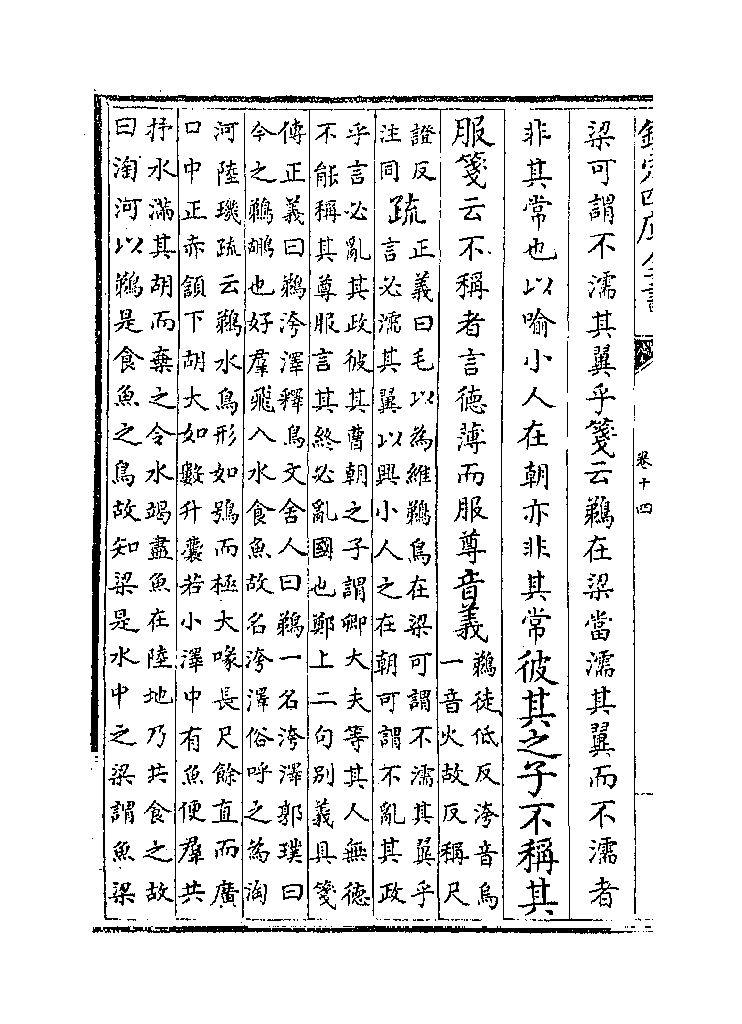 欽定四庫全書
卷十四
梁可謂不濡其翼乎箋云鵜在梁當濡其翼而不濡者
非其常也以喻小人在朝亦非其常彼其之子不稱其
服箋云不稱者言德薄而服尊音義
鵜徒低反洿音烏
一音火故反稱尺
證反
注同
疏
正義曰毛以為維鵜鳥在梁可謂不濡其翼乎
言必濡其翼以興小人之在朝可謂不亂其政
乎言必亂其政彼其曹朝之子謂卿大夫等其人無德
不能稱其尊服言其終必亂國也鄭上二句別義具箋
傳正義曰鵜洿澤釋鳥文舍人曰鵜一名洿澤郭璞曰
今之鵜鶘也好羣飛入水食魚故名洿澤俗呼之為淘
河陸璣疏云鵜水鳥形如鶚而極大喙長尺餘直而廣
口中正赤頷下胡大如數升囊若小澤中有魚便羣共
抒水滿其胡而棄之令水竭盡魚在陸地乃共食之故
曰淘河以鵜是食魚之鳥故知梁是水中之梁謂魚梁